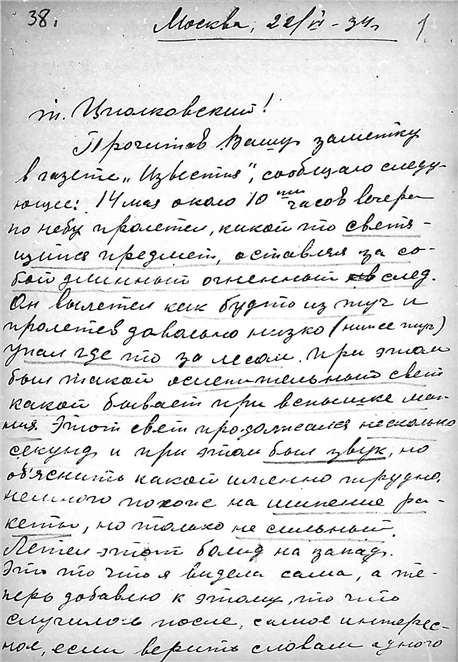 38.
Москва, 22/VI - 34 г.
1
т. Циолковский!
Прочитав Вашу заметку
в газете „Известия", сообщаю следу-
ющее: 14 мая около 10 ти часов вечера
по небу пролетел, какой то светя-
щийся предмет, оставляя за со-
бой длинный огненный след.
Он вылетел как будто из туч и
пролетев довольно низко (ниже туч)
упал где то за лесом. При этом
был такой ослепительный свет
какой бывает при вспышке маг-
ния. Этот свет продолжался несколько
секунд и при этом был звук, но
объяснить какой именно трудно,
немного похоже на шипение ра-
кеты, но только не сильный.
Летел этот болид на запад.
Это то что я видела сама, а те-
перь добавлю к этому, то что
случилось после, самое интерес-
ное, если верить словам одного